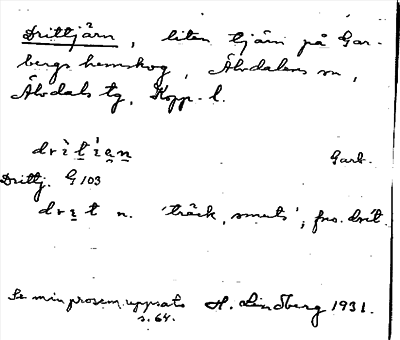 Drittjärn, liten tjärn på Gar-
bergs hemskog, Älvdalens sn,
Älvdals tg, Kopp. l.
Garb.
Drittj. G 103
n. 'träck, smuts', fno. drit.
Se min prosem.uppsats H. Lindberg 1931.
s. 64.